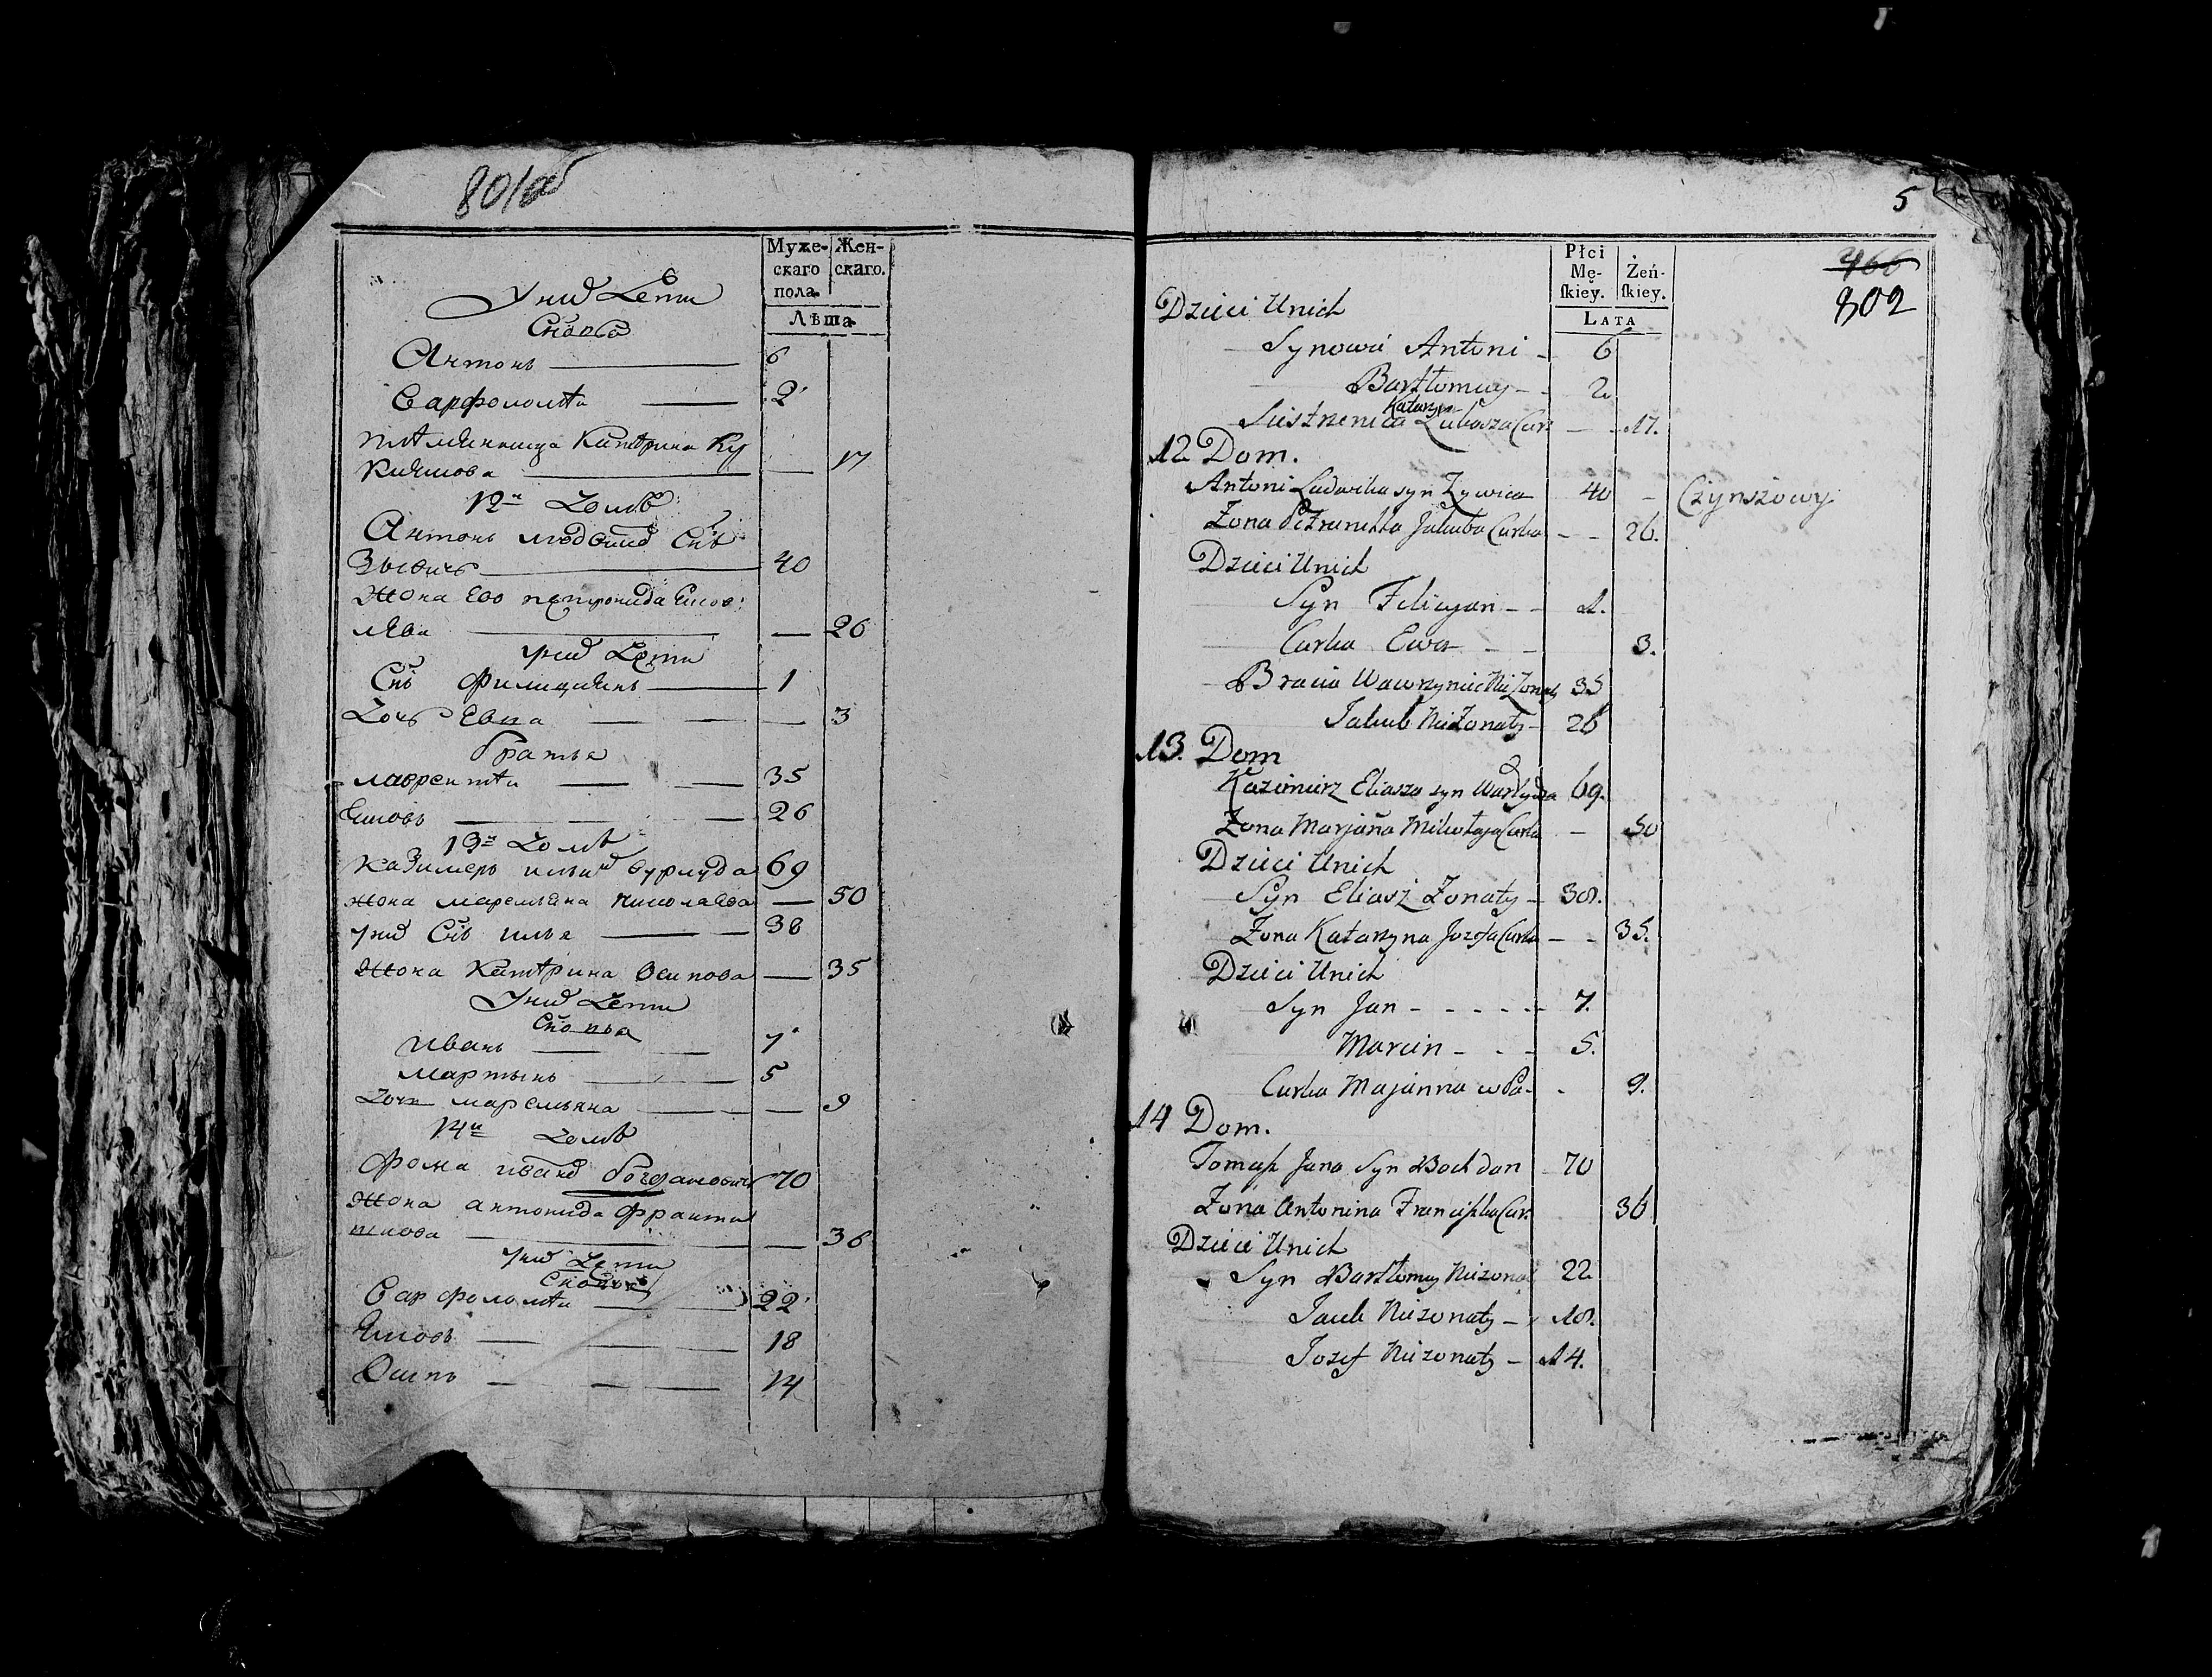 801об
Муже-
скаго
пола.
Жен-
скаго.
Лѣта
Уних Дети
Сновя
Антонъ 6
Варфоломѣи 2
племяница Катѣрина Лу
кяшова 17
12й Домъ
Антонъ людвик Снъ
Зывичъ 40
Жона Ево петронида Яков:
лева 26
уних Дети
Снъ Филициянъ 1
Дочь Евва 3
братья
лаврентѣи 35
Яковъ 26
13й Домъ
Казимеръ ильи вурлуда 69
жона марсьяна николаева 50
уних Снъ илья 38
Жона Катѣрина Осипова 35
Уних Дети
Сновья
иванъ 7
мартынъ 5
Дочь марсьяна 9
14й Домъ
фома иванъ богдановичъ 70
Жона антонида франти
шкова 36
уних Дети
Сновья
Варфоломѣи 22
Яковъ 18
Осипъ 14
5
Płci
Mę-
skiey.
Żeń-
skiey.
LATA
466
802
Dzieci Unich
Synowie Antoni 6
Bartłomiey 2
Katarzyna
Siestrzenica Łukasza Cur 17.
12 Dom.
Antoni Ludwika syn Zywica 40 Czynszowy
Zona Petrunella Jakuba Curka 26.
Dzieci Unich
Syn Felicyan 1.
Curka Ewa 3.
Bracia Wawrzyniec Nie Zonaty 35
Jakub Nie Zonaty 26
13. Dom
Kazimierz Eliasza syn Warłyda 69.
Zona Marjana Mikołaja Curka 50
Dzieci Unich
Syn Eliasz Zonaty 38.
Zona Katarzyna Jozefa Curka 35.
Dzieci Unich
Syn Jan 7.
Marcin 5.
Curka Majanna 9.
14 Dom.
Tomasz Jana Syn Bochdan 70
Zona Antonina Franciszka Cur. 36
Dzieci Unich
Syn Bartłomiey Niezonaty 22
Jacub Niezonaty 18.
Jozef Niezonaty 14.